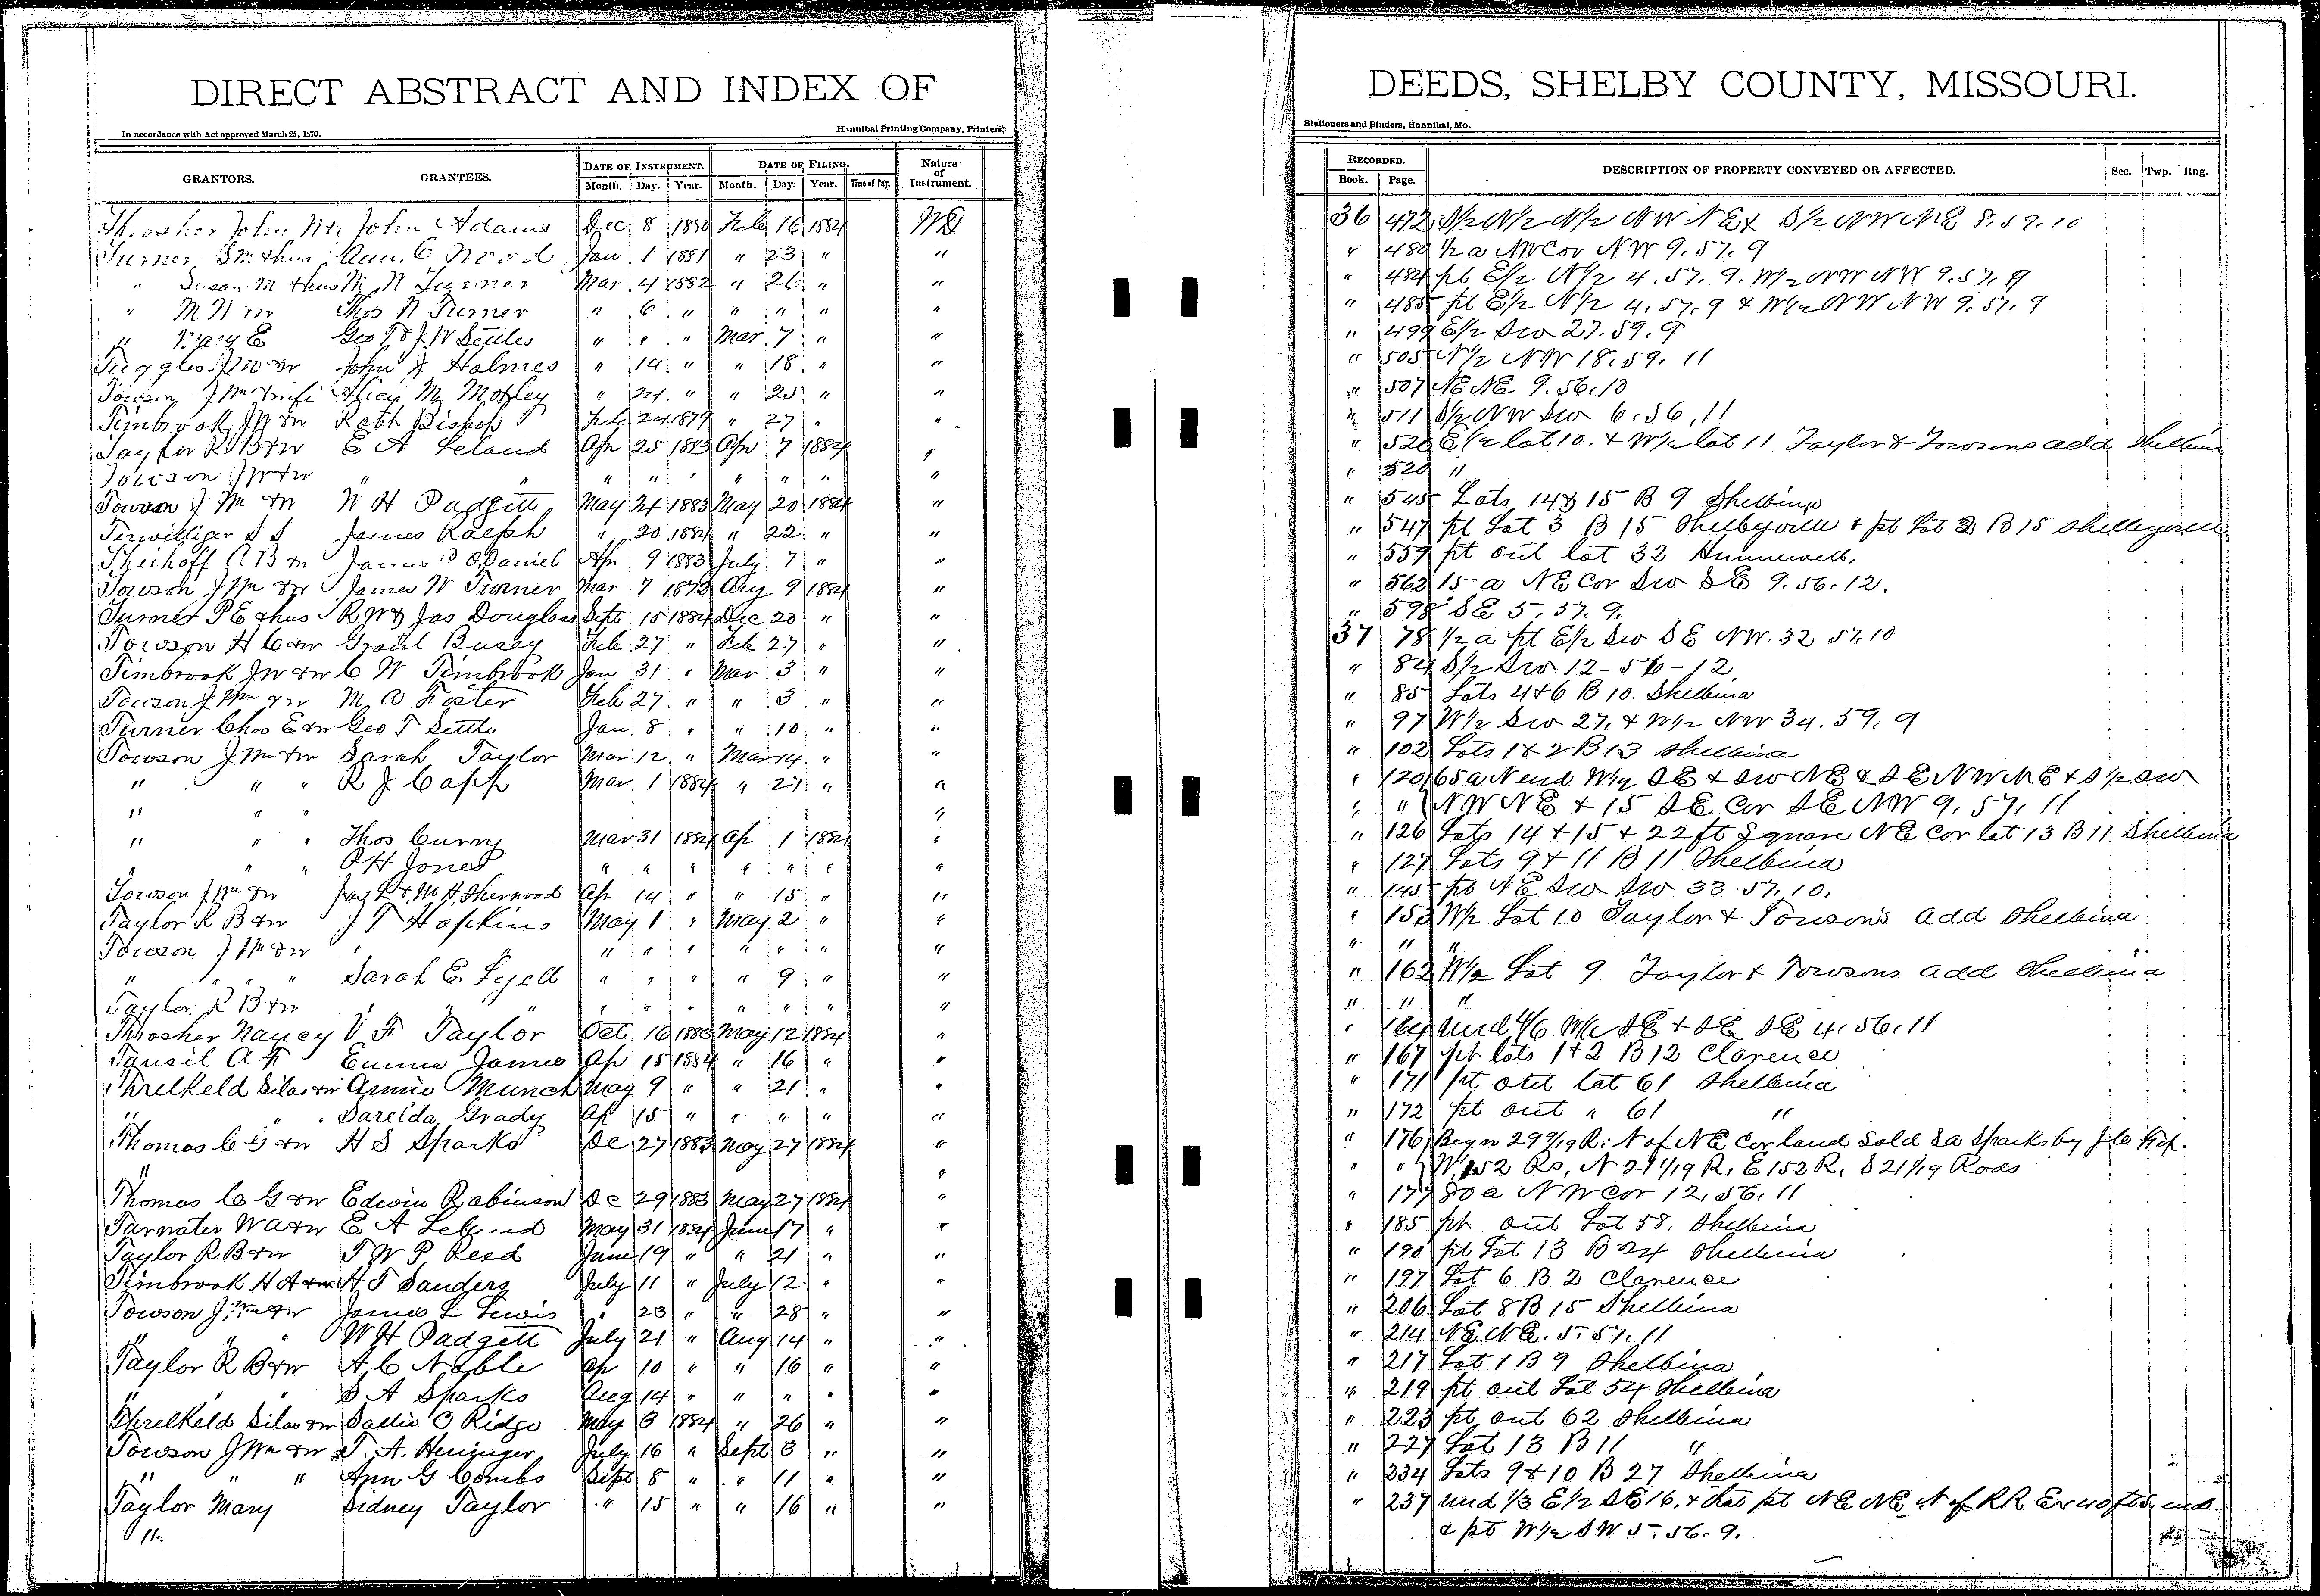 DIRECT ABSTRACT AND INDEX OF DEEDS, SHELBY COUNTY, MISSOURI.
In accordance with Act approved March 25, 1870. Hannibal Printing Company, Printers, Stationers and Binders, Hannibal, Mo.
GRANTORS. GRANTEES. DATE OF INSTRUMENT. DATE OF FILING. Nature of Instrument. RECORDED. DESCRIPTION OF PROPERTY CONVEYED OR AFFECTED. Sec. Twp. Rng.
Month. Day. Year. Month. Day. Year. Book. Page.
Thrasher John John Adams Dec 8 1880 Feb 16 1884 WD 36 472 S/2 N/2 N/2 NW NE & S/2 NW NE 8.59.10
Turner S M & hus Ann C. Wood Jan 1 1881 " 23 " " " 480 1/2 a NW Cor NW 9.57.9
" Susan M & hus M N Turner Mar 4 1882 " 26 " " " 484 pt E/2 N/2 4.57.9. W/2 NW NW 9.57.9
" M N & w Thos N Turner " 6 " " " " " " 485 pt E/2 N/2 4.57.9 & W/2 NW NW 9.57.9
" Mary E Geo T & J W Settles " " " Mar 7 " " " 499 E/2 SW 27.59.9
Tuggles J W & w John J Holmes " 14 " " 18 " " " 505 N/2 NW 18.59.11
Towson J Wm & wife Alice M Motley " 24 " " 25 " " " 507 NE NE 9.56.10
Timbrook J W & w Robt Bishop Feb 24 1879 " 27 " " " 511 S/2 NW SW 6.56.11
Taylor R B & w E A Leland Apr 25 1883 Apr 7 1884 " " 520 E/2 lot 10. & W/2 lot 11 Taylor & Towsons add Shelbina
Towson J W & w " " " " " " " " " " 520 "
Towson J Wm & w W H Padgett May 24 1883 May 20 1884 " " 545 Lots 14 & 15 B 9 Shelbina
Terwilliger S S James Ralph " 20 1884 " 22 " " " 547 pt Lot 3 B 15 Shelbyville & pt Lot 2 B 15 Shelbyville
Theihoff C B & w James P O.Daniel Apr 9 1883 July 7 " " " 559 pt out lot 32 Hunnewell,
Towson J Wm & w James W Turner Mar 7 1873 Aug 9 1884 " " 562 15 a NE Cor SW SE 9.56.12.
Turner P E & hus R W & Jas Douglass Sept 15 1884 Dec 20 " " " 598 SE 5.57.9.
Towson H C & w Grant Busey Feb 27 " Feb 27 " " 37 78 1/2 a pt E/2 SW SE NW. 32 57.10
Timbrook J W & w C W Timbrook Jan 31 " Mar 3 " " " 84 S/2 SW 12-56-12
Towson J Wm & w M A Foster Feb 27 " " 3 " " " 85 Lots 4 & 6 B 10. Shelbina
Turner Chas E & w Geo T Settle Jan 8 " " 10 " " " 97 W/2 SW 27, & W/2 NW 34.59.9
Towson J Wm & w Sarah Taylor Mar 12 " Mar 14 " " " 102 Lots 1 & 2 B 13 Shelbina
" " " R J Capp Mar 1 1884 " 27 " " " 120 65 a N end W/2 SE & SW NE & SE NW NE & S/2 SW
" " " " " " NW NE & 15 SE Cor SE NW 9.57.11
" " " Thos Curry Mar 31 1884 Ap 1 1884 " " 126 Lots 14 & 15 & 22 ft Square NE Cor lot 13 B 11. Shelbina
" " " P H Jones " " " " " " " " 127 Lots 9 & 11 B 11 Shelbina
Towson J Wm & w Jas L & M H. Sherwood Ap 14 " " 15 " " " 145 pt NE SW SW 33.57.10.
Taylor R B & w J T Hopkins May 1 " May 2 " " " 153 W/2 Lot 10 Taylor & Towson's add Shelbina
Towson J Wm & w " " " " " " " " " " " "
" " " Sarah E. Fyell " " " " 9 " " " 162 W/2 Lot 9 Taylor & Towsons add Shelbina
Taylor R B & w " " " " " " " " " " " "
Thrasher Nancy V F Taylor Oct 16 1883 May 12 1884 " " 164 und 4/6 W/2 SE & SE SE 4.56.11
Tansil A F Emma James Ap 15 1884 " 16 " " " 167 pt lots 1 & 2 B 12 Clarence
Threlkeld Silas & w Annie Munch May 9 " " 21 " " " 171 pt out lot 61 Shelbina
" " " Sarelda Grady Ap 15 " " " " " " 172 pt out " 61 "
Thomas C G & w H S Sparks De 27 1883 May 27 1884 " " 176 Begn 29 9/19 R. N of NE cor land sold Sa Sparks by J C
" " " " W. 152 Rs, N 21 1/19 R, E 152 R, S 21 1/19 Rods
Thomas C G & w Edwin Robinson De 29 1883 May 27 1884 " " 177 80 a NW cor 12.56.11
Tarwater W A & w E A Leland May 31 1884 June 17 " " " 185 pt out Lot 58, Shelbina
Taylor R B & w T W P Reed June 19 " " 21 " " " 190 pt Lot 13 B 24 Shelbina
Timbrook H A & w H T Sanders July 11 " July 12 " " " 197 Lot 6 B 2 Clarence
Towson J Wm & w James L Lewis " 23 " " 28 " " " 206 Lot 8 B 15 Shelbina
" " " W H Padgett July 21 " Aug 14 " " " 214 NE.NE. 5.57.11
Taylor R B & w A C Noble Ap 10 " " 16 " " " 217 Lot 1 B 9 Shelbina
" " " S A Sparks Aug 14 " " " " " " 219 pt out Lot 54 Shelbina
Threlkeld Silas & w Sallie O Ridge May 3 1884 " 26 " " " 223 pt out 62 Shelbina
Towson J Wm & w T. A. Heninger July 16 " Sept 3 " " " 227 Lot 13 B 11 "
" " " Ann G Combs Sept 8 " " 11 " " " 234 Lots 9 & 10 B 27 Shelbina
Taylor Mary Sidney Taylor " 15 " " 16 " " " 237 und 1/3 E/2 SE 16, & that pt NE NE N of RR Ex 40 ft
" & pt W/2 SW 5.56.9.